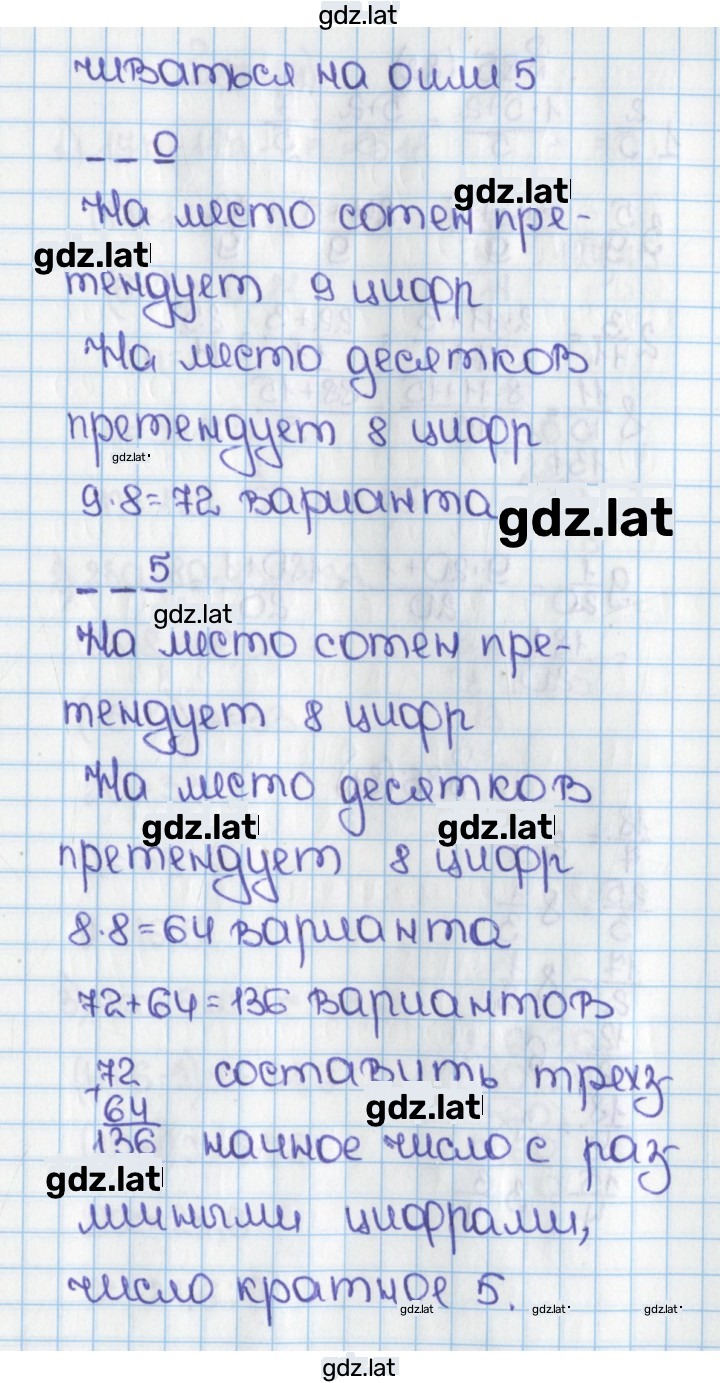 gdz.lat
чиваться на 0 или 5
_ _ 0
gdz.lat
На место сотен пре-
gdz.lat
тендует 9 цифр
На место десятков
претендует 8 цифр
gdz.lat
9·8=72 варианта
gdz.lat
_ _ 5
gdz.lat
На место сотен пре-
тендует 8 цифр
На место десятков
gdz.lat gdz.lat
претендует 8 цифр
8·8=64 варианта
72+64=136 вариантов
72 составить трехз
+64
gdz.lat
136 начное число с раз
gdz.lat
личными цифрами,
число кратное 5.
gdz.lat gdz.lat gdz.lat
gdz.lat